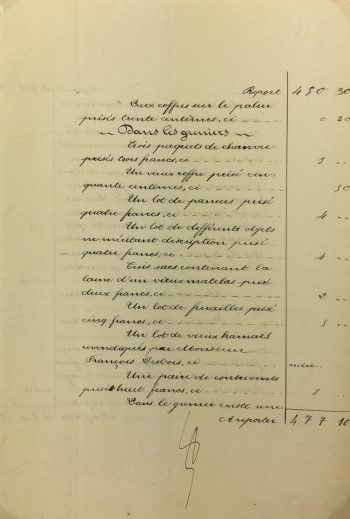 Report 450 30
Deux coffres sur le palier
prisés trente centimes, ci 0 30
Dans les greniers
Trois paquets de chanvre
prisés trois francs, ci 3 ..
Un vieux coffre prisé cin
quante centimes, ci 50
Un lot de paniers prisé
quatre francs, ci 4 ..
Un lot de différents objets
ne méritant description prisé
quatre francs, ci 4 ..
Trois sacs contenant la
laine d'un vieux matelas prisé
deux francs, ci 2 ..
Un lot de ferailles prisé
cinq francs, ci 5 ..
Un lot de vieux harnais
revendiqués par Monsieur
François Lesbois, ci
Une paire de contrevents
prisé huit francs, ci 8 ..
Dans le grenier existe une
A reporter 477 10